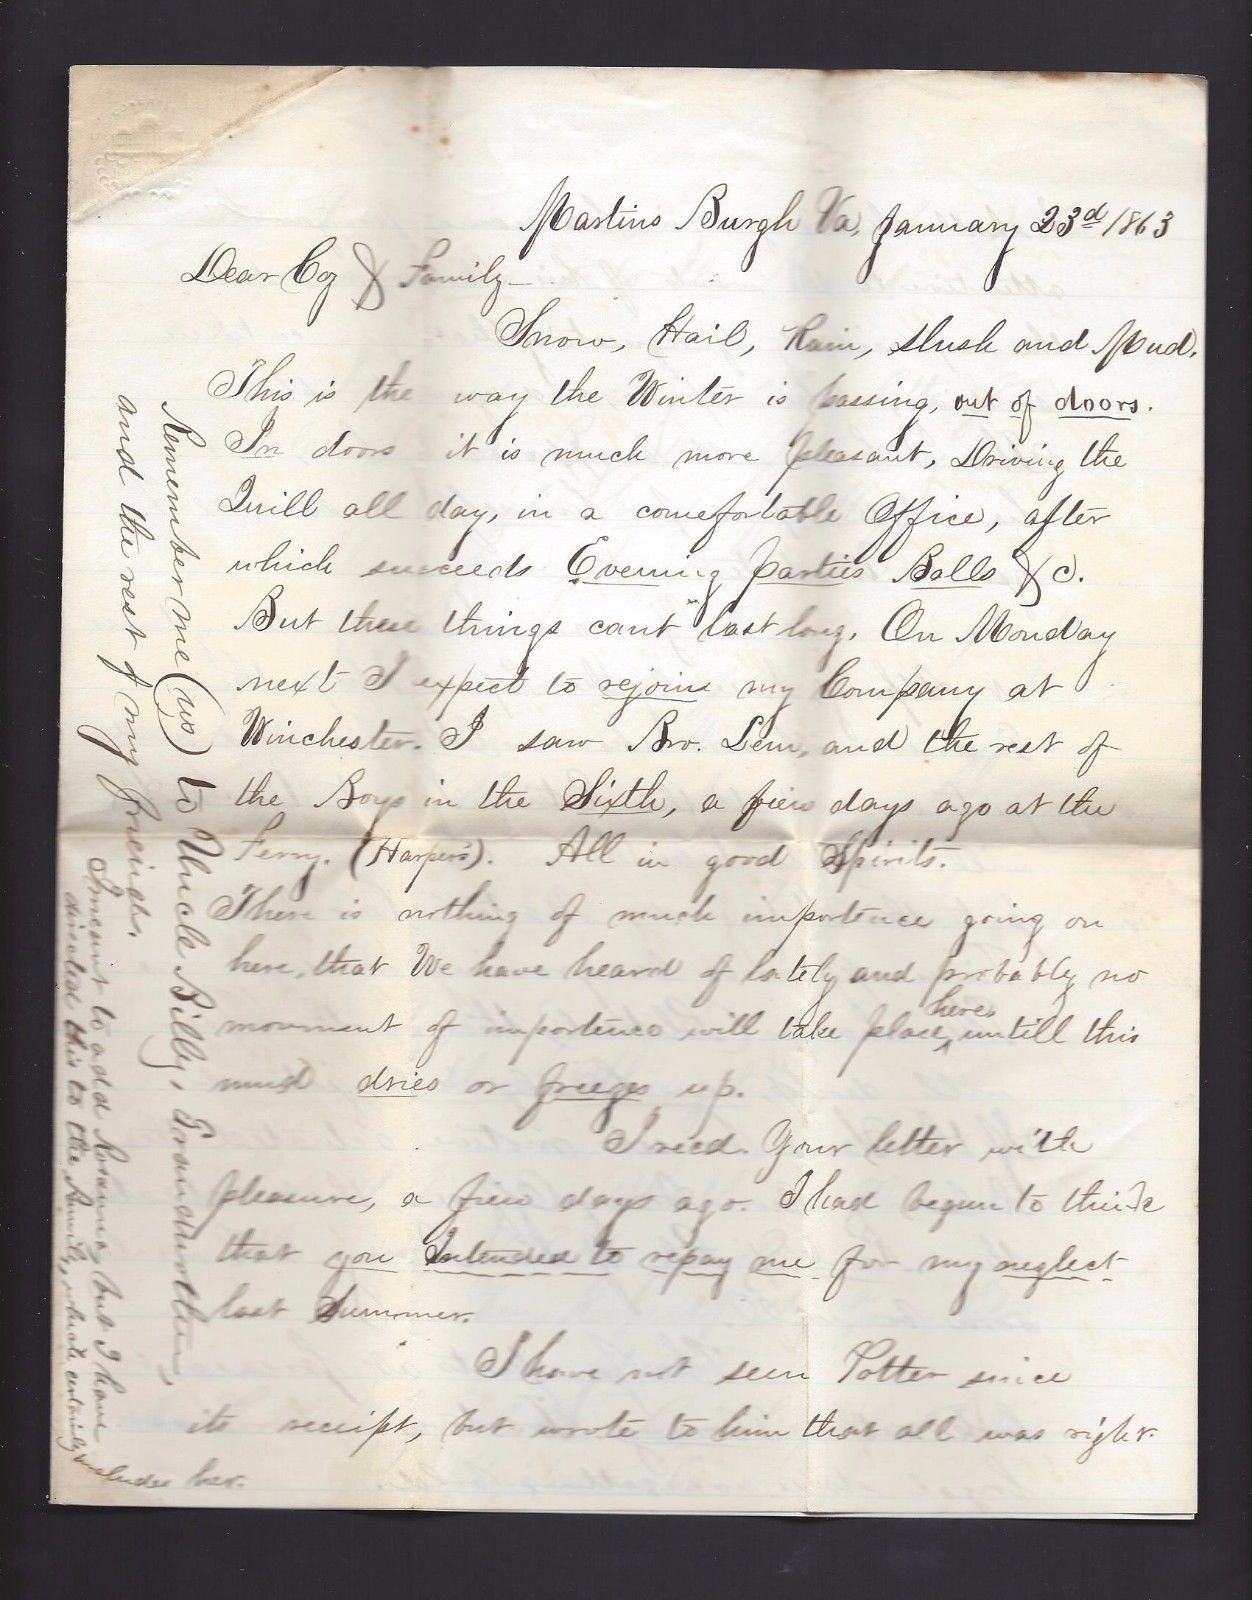 Martins Burgh Va, January 23d 1863
Dear Coz & Family—
Snow, Hail, Rain, slush and Mud.
This is the way the Winter is passing, out of doors.
In doors it is much more pleasant, Driving the
Quill all day, in a comefortable Office, after
which succeeds Evening parties Balls &c.
But these things cant last long. On Monday
next I expect to rejoin my Company at
Winchester. I saw Bro. Lem, and the rest of
the Boys in the Sixth, a few days ago at the
Ferry. (Harpers). All in good Spirits.
There is nothing of much importence going on
here, that We have heard of lately and probably no
movement of importence will take place, here, untill this
mud dries or freezes up.
I recd. Your letter with
pleasure, a few days ago. I had begun to think
that you Intended to repay me for my neglect
last Summer.
I have not seen Potter since
its receipt, but wrote to him that all was right.
Remember me (us) to Uncle Billy, Grandmother,
and the rest of my freinds.
I meant to add but I have
directed this to the Family, which certainly includes her.